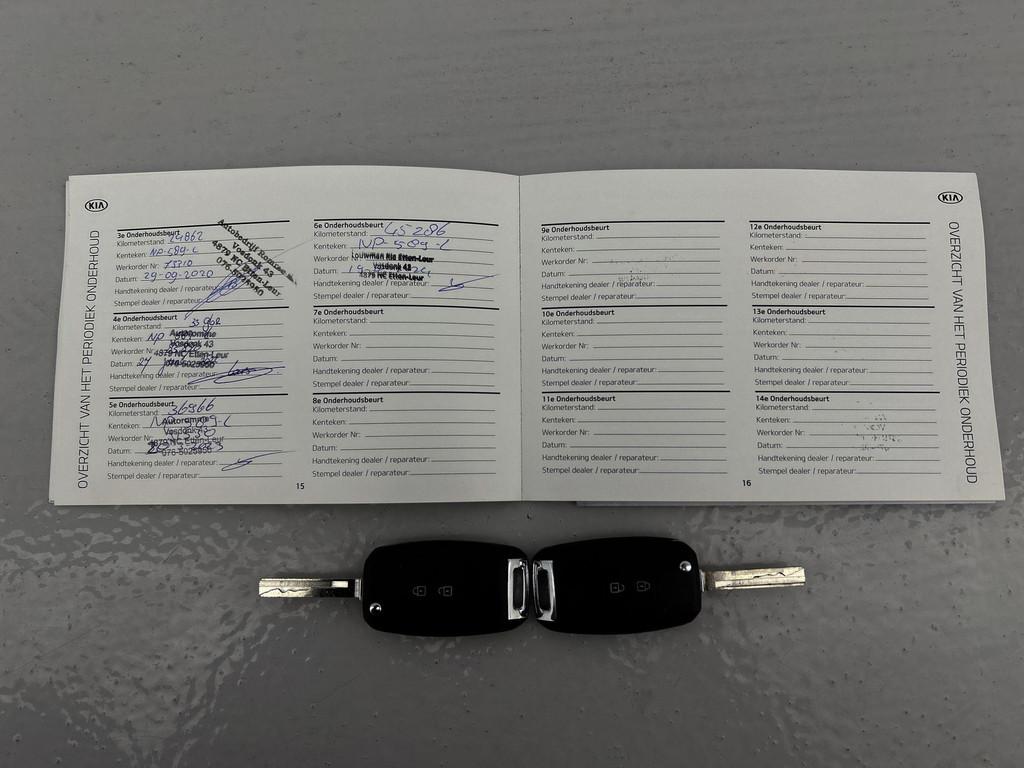 KIA
OVERZICHT VAN HET PERIODIEK ONDERHOUD
3e Onderhoudsbeurt
Kilometerstand: 24862
Kenteken: NP-589-L
Werkorder Nr:
Datum: 29-09-2020
Handtekening dealer / reparateur:
Stempel dealer / reparateur:
Autobedrijf Romme
Vosdonk 43
4879 NC Etten-Leur
076-5025950
4e Onderhoudsbeurt
Kilometerstand:
Kenteken: NP
Werkorder Nr:
Datum: 24
Handtekening dealer / reparateur:
Stempel dealer / reparateur:
Autoromme
Vosdonk 43
4879 NC Etten-Leur
076-5025950
5e Onderhoudsbeurt
Kilometerstand: 36966
Kenteken:
Werkorder Nr:
Datum:
Handtekening dealer / reparateur:
Stempel dealer / reparateur:
Autoromme
Vosdonk 43
4879 NC Etten-Leur
076-5025950
6e Onderhoudsbeurt
Kilometerstand: 45286
Kenteken: NP-589-L
Werkorder Nr:
Datum:
Handtekening dealer / reparateur:
Stempel dealer / reparateur:
Louwman Kia Etten-Leur
Vosdonk 43
4879 NC Etten-Leur
7e Onderhoudsbeurt
Kilometerstand:
Kenteken:
Werkorder Nr:
Datum:
Handtekening dealer / reparateur:
Stempel dealer / reparateur:
8e Onderhoudsbeurt
Kilometerstand:
Kenteken:
Werkorder Nr:
Datum:
Handtekening dealer / reparateur:
Stempel dealer / reparateur:
15
9e Onderhoudsbeurt
Kilometerstand:
Kenteken:
Werkorder Nr:
Datum:
Handtekening dealer / reparateur:
Stempel dealer / reparateur:
10e Onderhoudsbeurt
Kilometerstand:
Kenteken:
Werkorder Nr:
Datum:
Handtekening dealer / reparateur:
Stempel dealer / reparateur:
11e Onderhoudsbeurt
Kilometerstand:
Kenteken:
Werkorder Nr:
Datum:
Handtekening dealer / reparateur:
Stempel dealer / reparateur:
KIA
12e Onderhoudsbeurt
Kilometerstand:
Kenteken:
Werkorder Nr:
Datum:
Handtekening dealer / reparateur:
Stempel dealer / reparateur:
13e Onderhoudsbeurt
Kilometerstand:
Kenteken:
Werkorder Nr:
Datum:
Handtekening dealer / reparateur:
Stempel dealer / reparateur:
14e Onderhoudsbeurt
Kilometerstand:
Kenteken:
Werkorder Nr:
Datum:
Handtekening dealer / reparateur:
Stempel dealer / reparateur:
16
OVERZICHT VAN HET PERIODIEK ONDERHOUD